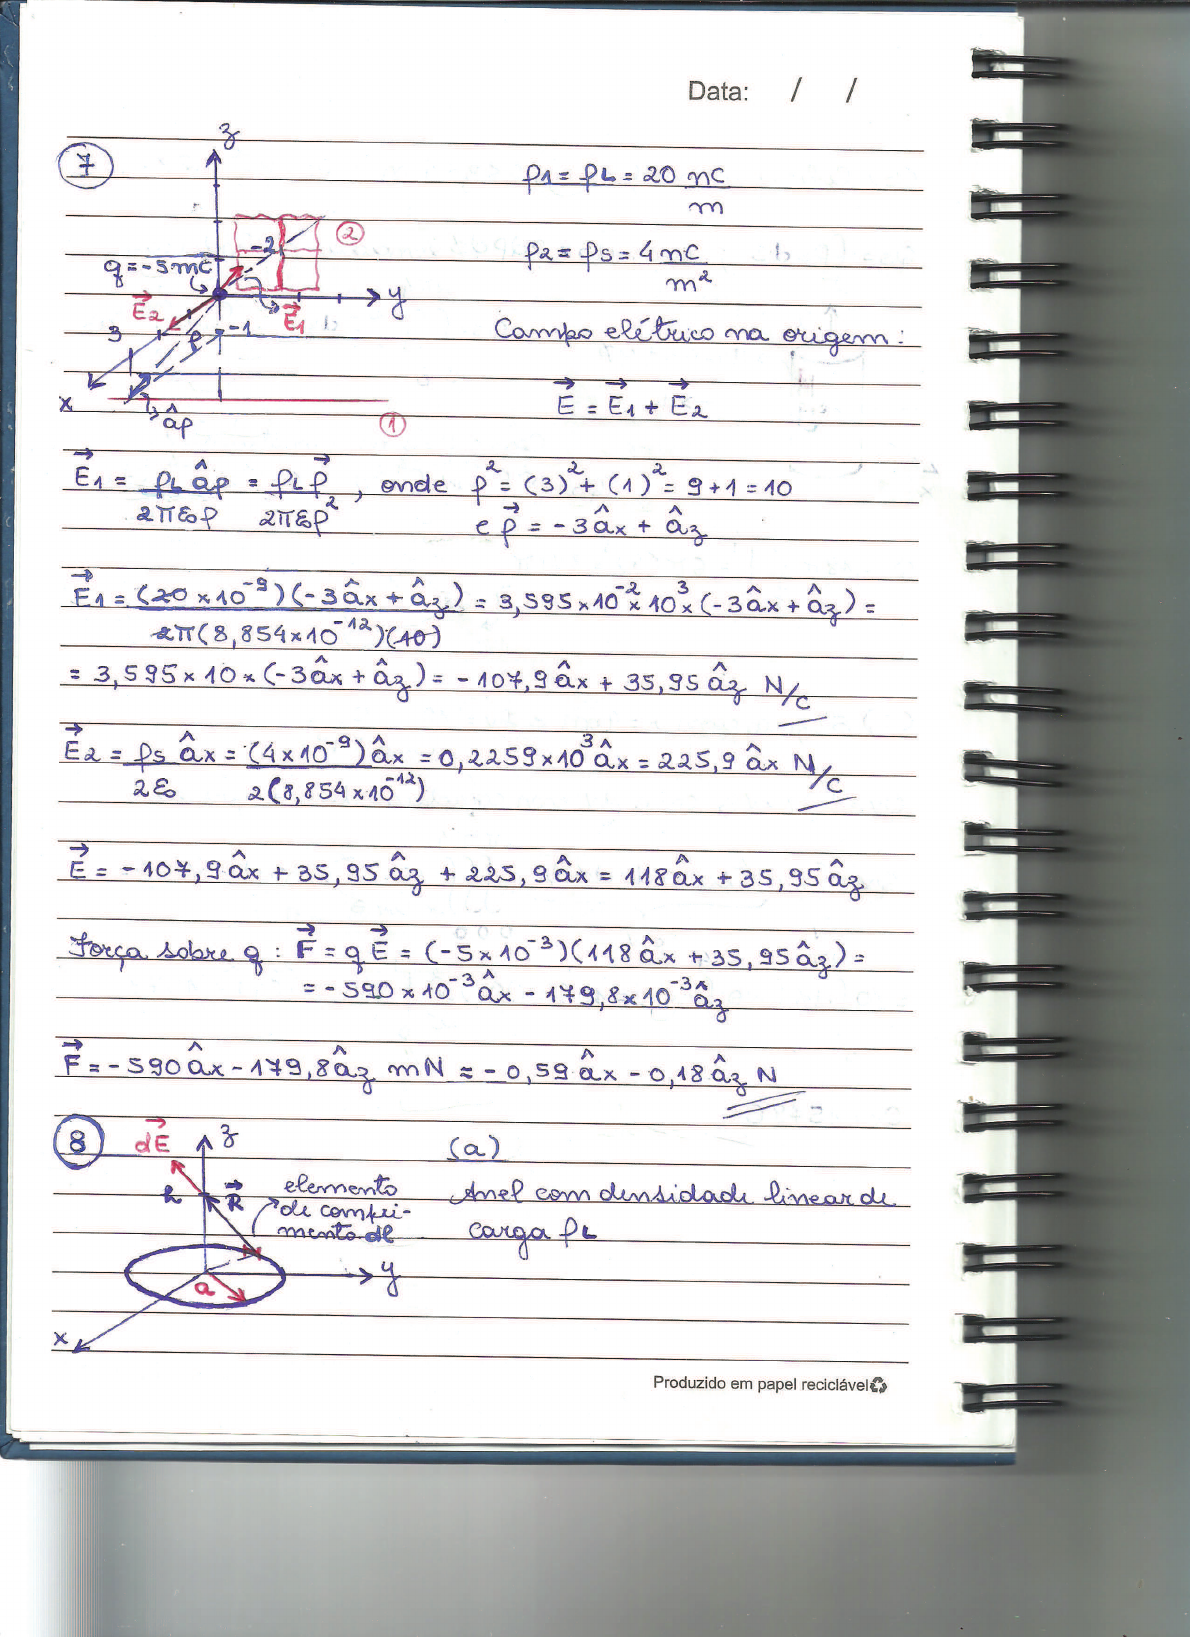 Data: / /
7
z
ρ1 = ρL = 20 nC/m
2
-2
q = -5mC
ρ2 = ρs = 4 nC/m²
y
E2
E1
3
ρ
-1
Campo elétrico na origem:
x
âρ
1
E = E1 + E2
E1 = ρL âρ / 2πε0ρ = ρL ρ / 2πε0ρ², onde ρ² = (3)² + (1)² = 9 + 1 = 10
e ρ = -3âx + âz
E1 = (20×10⁻⁹)(-3âx + âz) / 2π(8,854×10⁻¹²)(10) = 3,595×10⁻²×10³×(-3âx + âz) =
= 3,595×10×(-3âx + âz) = -107,9âx + 35,95âz N/C
E2 = ρs âx / 2ε0 = (4×10⁻⁹)âx / 2(8,854×10⁻¹²) = 0,2259×10³âx = 225,9âx N/C
E = -107,9âx + 35,95âz + 225,9âx = 118âx + 35,95âz
Força sobre q: F = qE = (-5×10⁻³)(118âx + 35,95âz) =
= -590×10⁻³âx - 179,8×10⁻³âz
F = -590âx - 179,8âz mN = -0,59âx - 0,18âz N
8
dE
z
(a)
h
R
elemento
de compri-
mento dl
Anel com densidade linear de
carga ρL
y
a
x
Produzido em papel reciclável